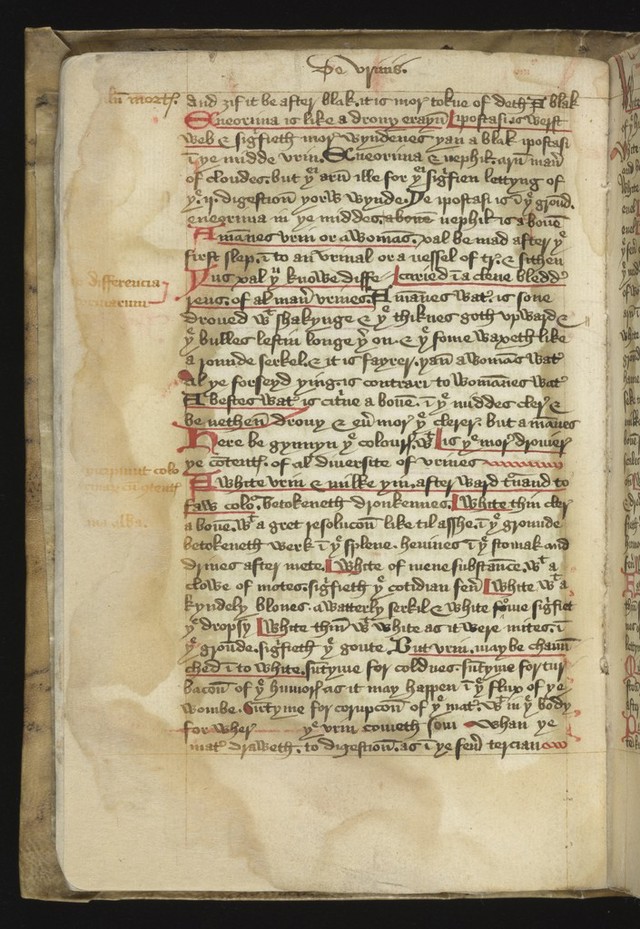 De Vrinis.
and ȝif it be after blak. it is mor tokne of deth. A blak
Eneorima is like a drony erayn. ipostasi. is werst
web & sig͛fieth mor wyndenes yan a blak ipostasi
ī ye midde vrin. Eneorima & nephik. arn man͛
of cloudes. but yͥ arn ille for yͥ sig͛fien lettyng of
yᵉ .ij. digestion yorw wynde. De ipostasi is ī yᵉ ground.
enegrima in ye middes. aboue nephik is a boue
A manes vrin or a womās. xal be mad after yᵉ
first slep. ī to an vrinal or a vessel of & sithen
yus xal yᵘ knowe diffe caried ī a clene bledd͛
rens. of al man͛ vrines. A manes wat͛ is sone
droued wᵗ shakynge & yᵉ thiknes goth vpward &
yᵉ bulles lestin longe yͬ on. & yᵉ fome waxeth like
a rounde serkel. & it is fayrer. yan a womās wat͛
Al ye forseyd ying. is contrari to womānes wat͛
A bestes wat͛ is citrīe a boue. ī yᵉ middes cler &
be nethen drony & eu͛ mor yᵉ clerer. but a mānes
Here be gynnyn yᵉ colours. wᵗ is yᵉ mor drouier
ye cōtentꝭ. of al diuersite of vrines
A white vrin & milke yin. after ward turnand to
faw colo͛. betokeneth dronkennes. White thin cler
a boue. wᵗ a gret resolucōn like til asshe. ī yᵉ grounde
betokeneth werk ī yᵉ splene. heuines ī yᵉ stomak and
drines after mete. White of mene substance. wᵗ a
clowe of motes. sig͛fieth yᵉ cotidian feu͛. White wᵗ a
kyndely blones. a watterly serkil & white fome sig͛fiet
yᵉ dropsy. White thin wᵗ white as it were mites. ī
yᵉ grounde. sig͛fieth yᵉ goute. But vrin. may be chaun
ched ī to white. sūtyme for coldnes. sūtyme for tur
bacōn of yᵉ humorꝭ as it may happen ī yᵉ flux of ye
wombe. Sūtyme for corupcōn of yᵉ mat͛. wᵗ in yᵉ body
for wher yᵉ vrin cometh som whan ye
mat͛ draweth. to digestion. as ī ye feu͛ tercian
differencia
alba.